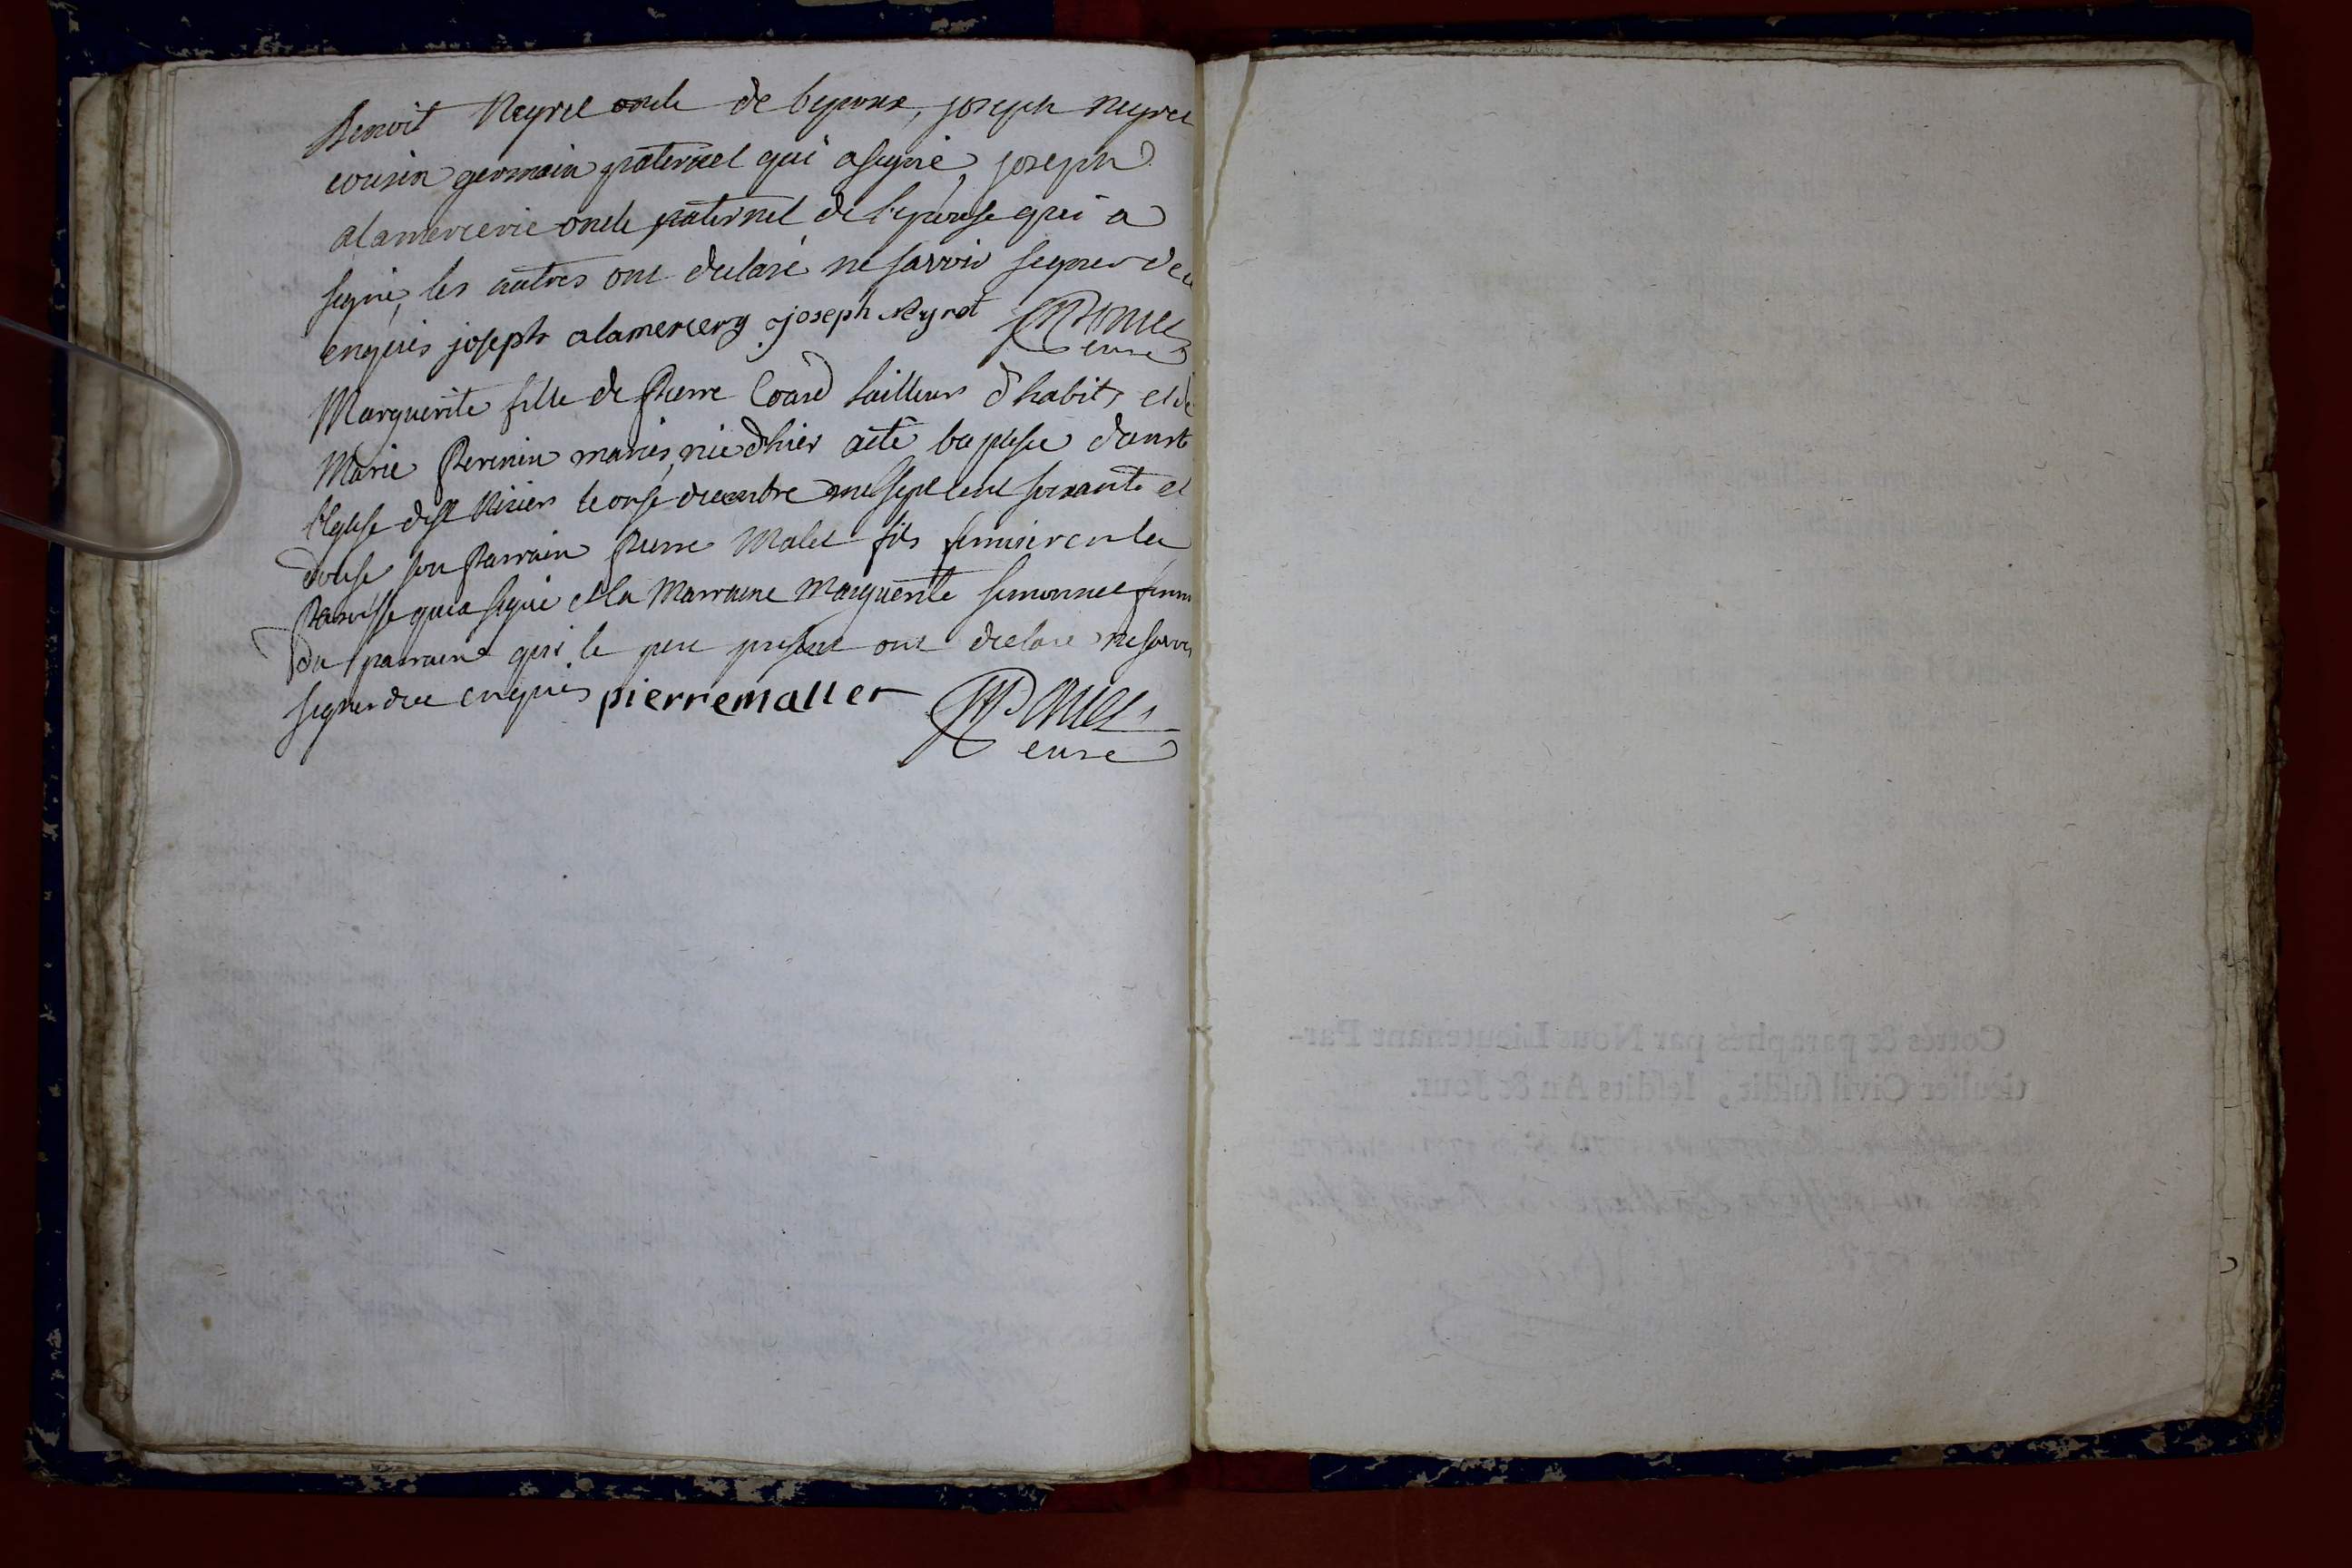 Benoit Neyret oncle de l'epoux, joseph neyret
cousin germain paternel qui a signé, joseph
alamercerie oncle paternel de l'epouse qui a
signé, les autres ont declaré ne savoir signer de ce
enquis joseph alamercery joseph Neyret
curé
Marguerite fille de Pierre Coard tailleur d'habits et de
Marie Perenin mariés, née d'hier a été baptisée dans
l'Eglise de st Nizier le onse decembre mil sept cent soixante et
douse son Parrain Pierre Malet fils
Paroisse qui a signé et la Marraine Marguerite simonnet femme
du parrain qui le pere present ont declaré ne savoir
signer de ce enquis pierre maller
curé
Cottés & paraphés par Nous Lieutenant Par-
ticulier Civil susdit, lesdits An & Jour.